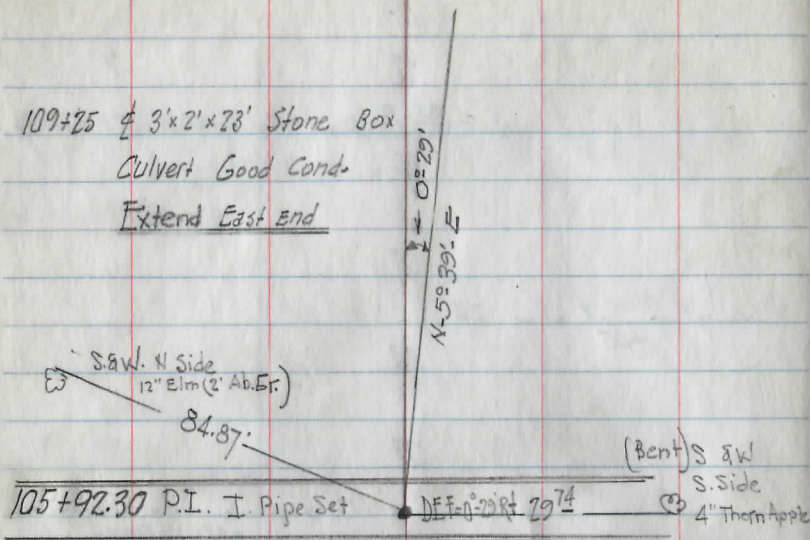 109+25 ℄ 3'x2'x23' Stone Box
Culvert Good Cond.
Extend East End
∠ 0°29'
N-5°39'-E
S.&W. N Side
12" Elm (2' Ab.Gr.)
84.87'
(Bent) S &W
S. Side
4" Thorn Apple
105+92.30 P.I. I. Pipe Set
DEF=0°-29' Rt 29 74